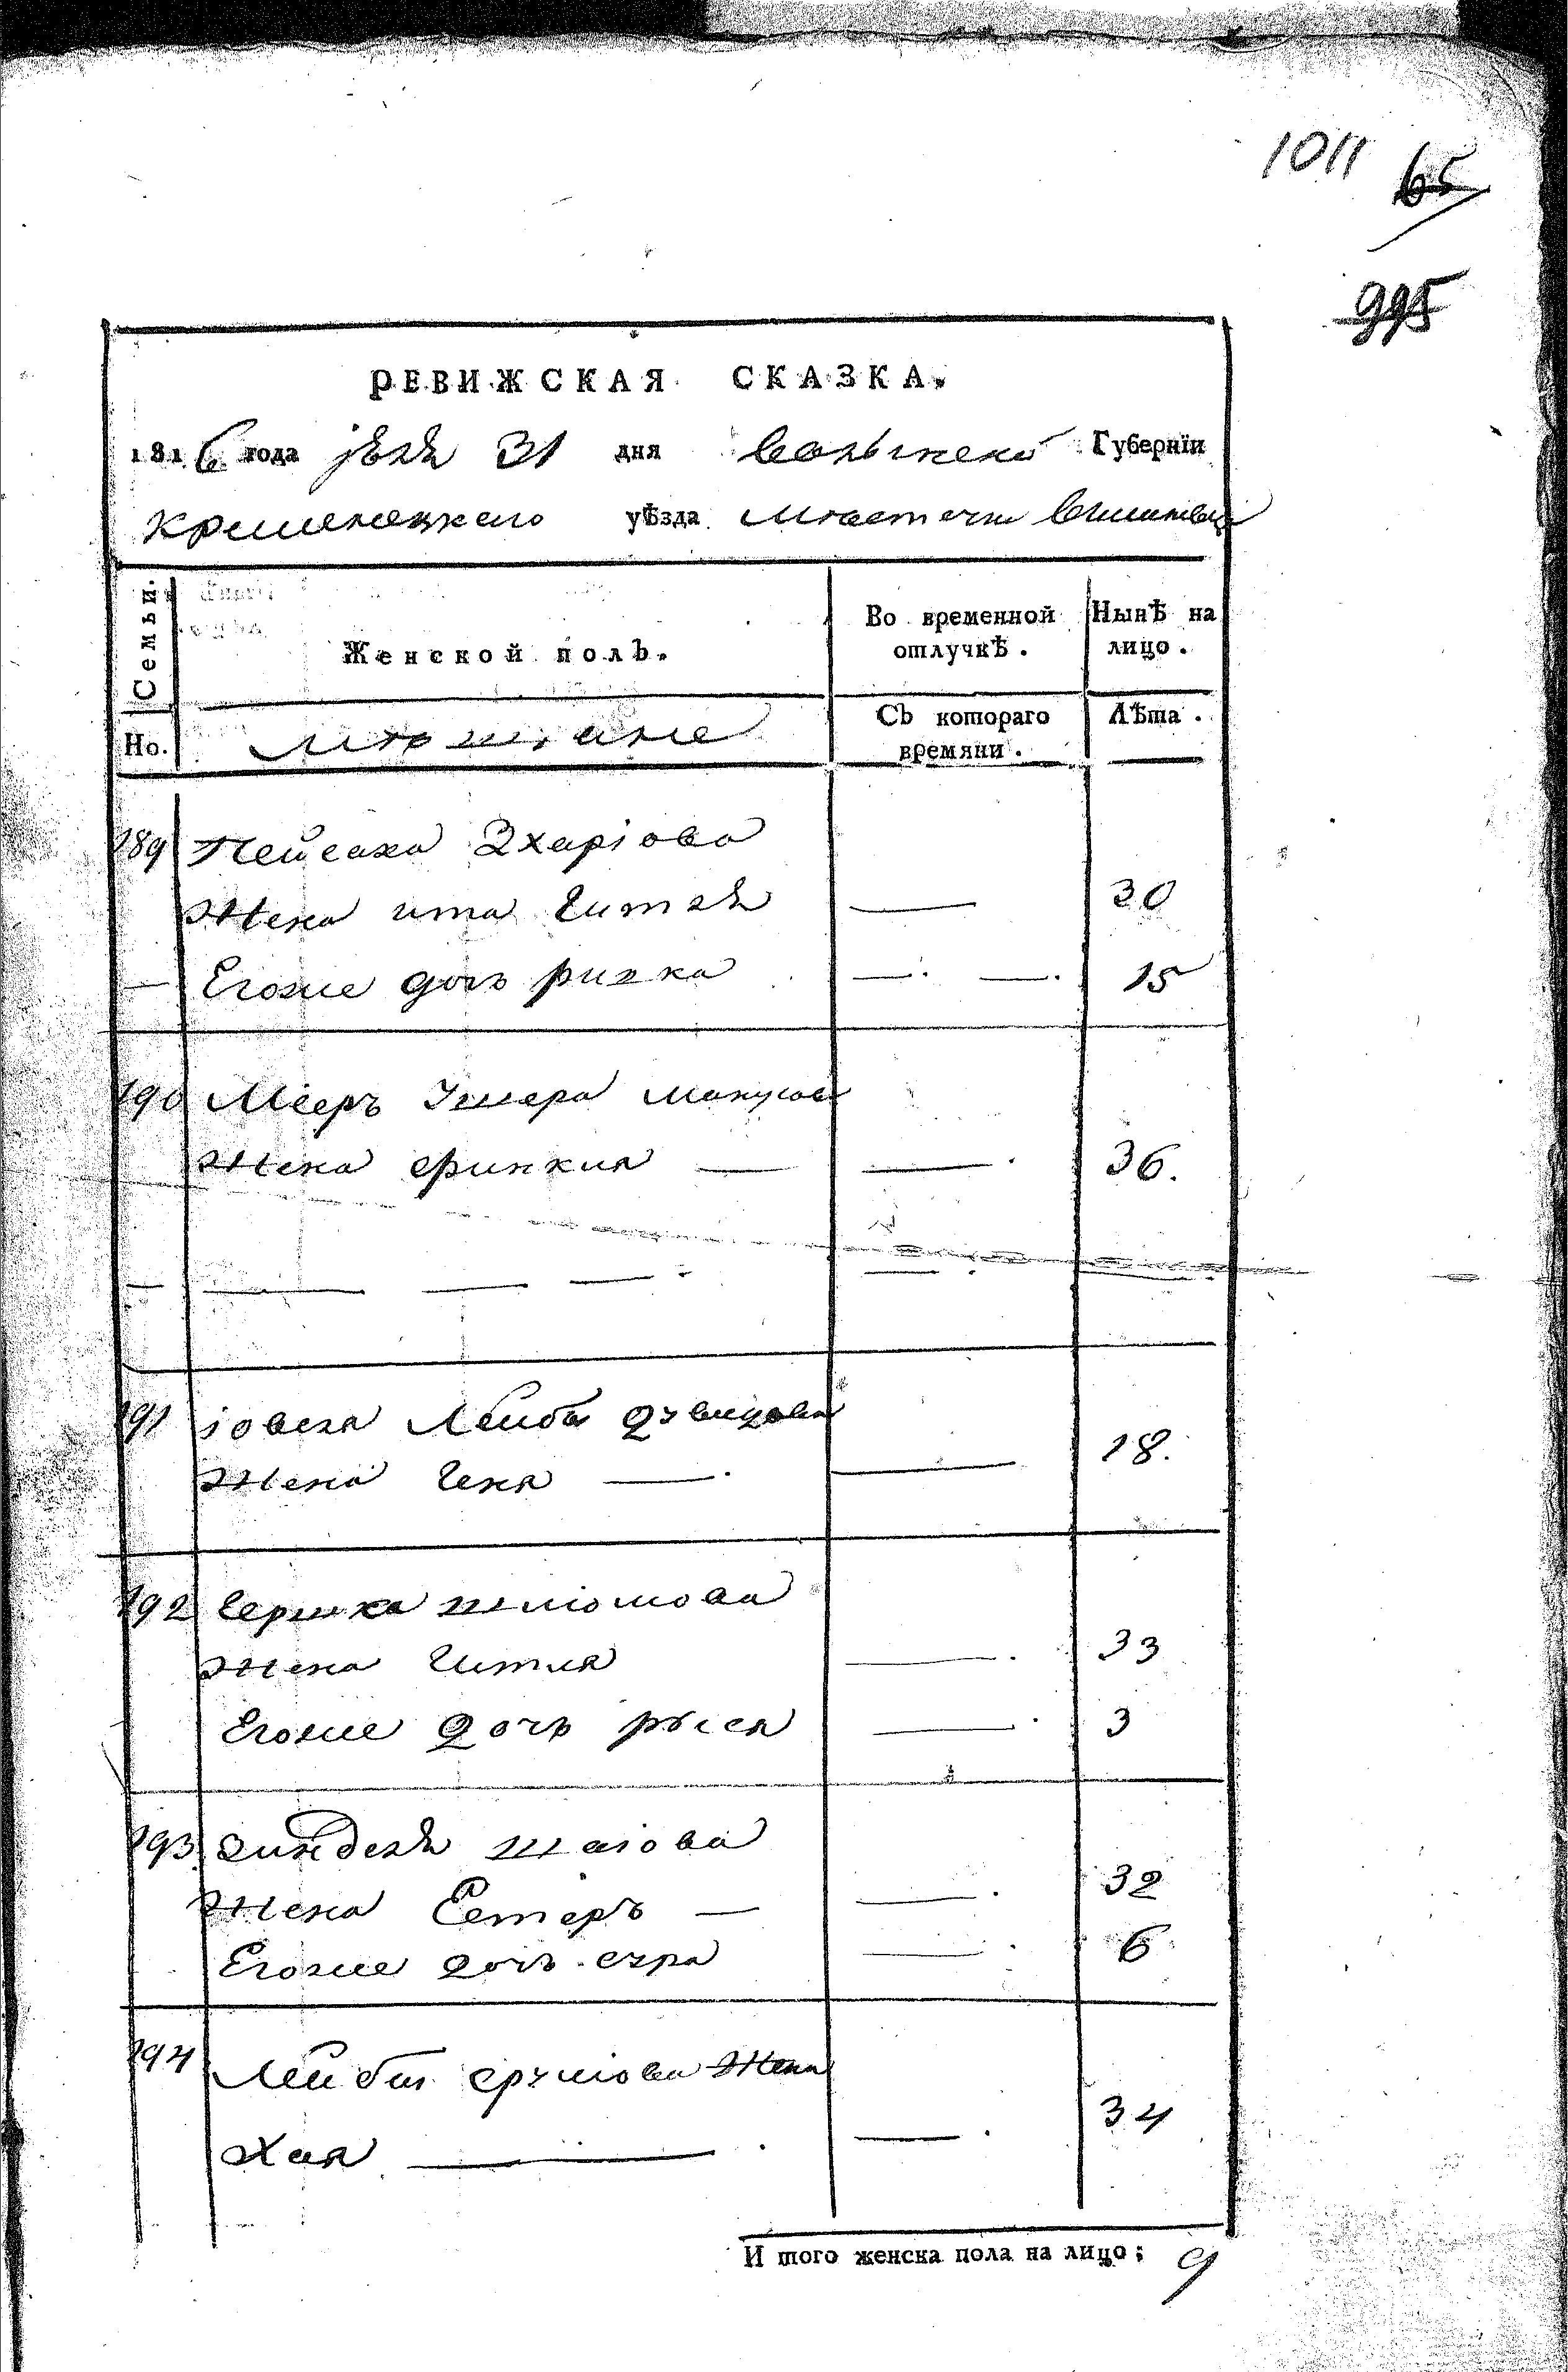 1011
65
995
РЕВИЖСКАЯ СКАЗКА.
1816 года 31 дня Волынской Губернїи
Кременецкаго уѣзда Местечка Вишневца
Семьи.
Женской полъ.
Во временной отлучкѣ.
Нынѣ на лицо.
Но.
Съ котораго времяни.
Лѣта.
189 Пейсаха Зхаріова
Жена ита Гитля — 30
— Егоже дочь ривка — — 15
190 Меерь Ушера
Жена фрин­кия — — 36.
191 іоселя Лейбы
Жена Геня — — 18.
192 Гершка шліомова
Жена Гитля — 33
Егоже дочь рыся — 3
193 зинделя шаіова
Жена Естеръ — — 32
Егоже дочь сура — 6
194 Лейбы Жена
Хая — — 34
И того женска пола на лицо; 9